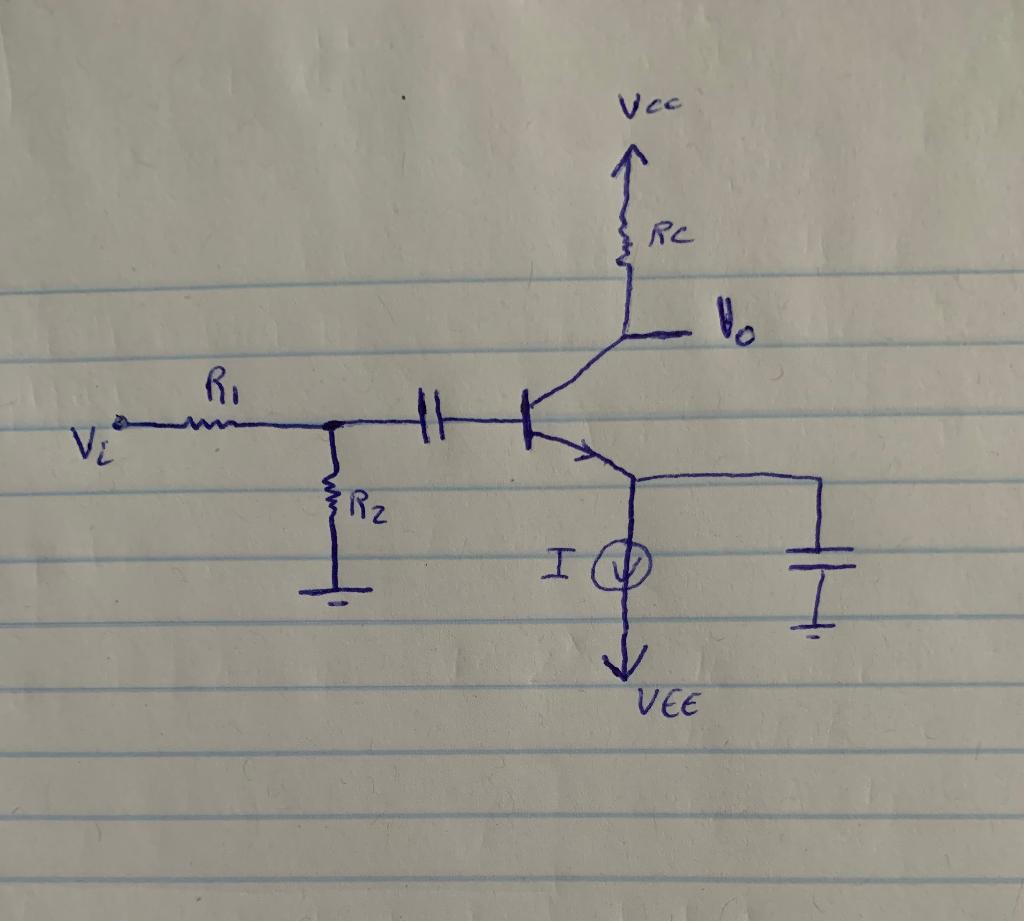 Vcc
Rc
Vo
R1
Vi
R2
I
VEE